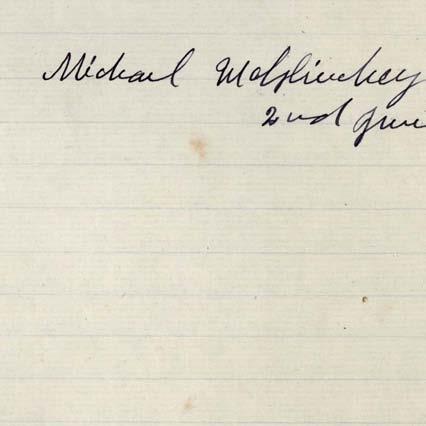 Michael McGlinchey
2nd June